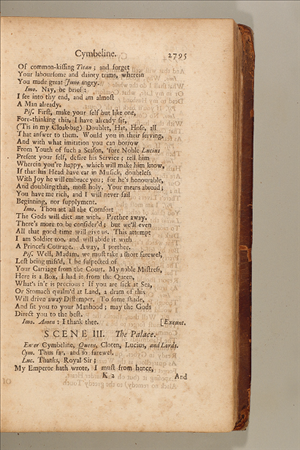 Cymbeline. 2795
Of common-kissing Titan; and forget
Your laboursome and dainty trims, wherein
You made great Juno angry.
Imo. Nay, be brief:
I see into thy end, and am almost
A Man already.
Pis. First, make your self but like one,
Fore-thinking this, I have already fit,
('Tis in my Cloak-bag) Doublet, Hat, Hose, all
That answer to them. Would you in their serving,
And with what imitation you can borrow
From Youth of such a Season, 'fore Noble Lucius
Present your self, desire his Service; tell him
Wherein you're happy, which will make him know,
If that his Head have ear in Musick, doubtless
With Joy he will embrace you; for he's honourable,
And doubling that, most holy. Your means abroad;
You have me rich, and I will never fail
Beginning, nor supplyment.
Imo. Thou art all the Comfort
The Gods will diet me with. Prethee away.
There's more to be consider'd; but we'll even
All that good time will give us. This attempt
I am Soldier too, and will abide it with
A Prince's Courage. Away, I prethee.
Pis. Well, Madam, we must take a short farewel,
Left being mist, I be suspected of
Your Carriage from the Court. My noble Mistress,
Here is a Box, I had it from the Queen,
What's in't is precious: If you are sick at Sea,
Or Stomach qualm'd at Land, a dram of this
Will drive away Distemper. To some shade,
And fit you to your Manhood; may the Gods
Direct you to the best.
Imo. Amen: I thank thee. [Exeunt.
SCENE III. The Palace.
Enter Cymbeline, Queen, Cloten, Lucius, and Lords.
Cym. Thus far, and so farewel.
Luc. Thanks, Royal Sir;
My Emperor hath wrote, I must from hence,
K 2 And